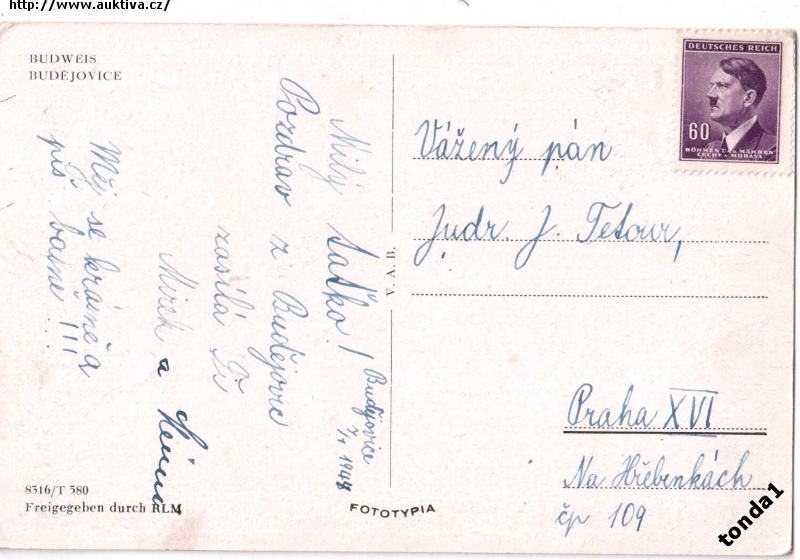 http://www.auktiva.cz/
BUDWEIS
BUDĚJOVICE
Budějovice
Milý taťko!
Pozdrav z Budějovic
zasílá Ti
Mirek a
Měj se krásně a
piš !!!
V. A. B.
DEUTSCHES REICH
60
BÖHMEN U. MÄHREN
ČECHY A MORAVA
Vážený pán
Judr. J. Tetour,
Praha XVI
Na Hřebenkách
čp 109
8316/T 380
Freigegeben durch RLM
FOTOTYPIA
tonda1